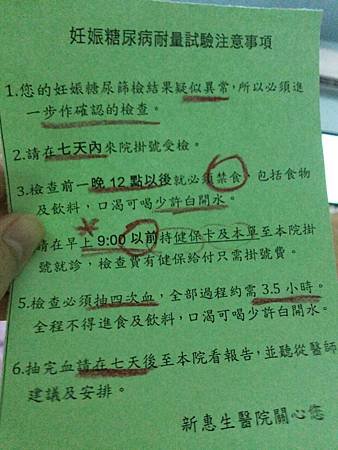 妊娠糖尿病耐量試驗注意事項
1.您的妊娠糖尿篩檢結果疑似異常,所以必須進
一步作確認的檢查。
2.請在七天內來院掛號受檢。
3.檢查前一晚12點以後就必須禁食,包括食物
及飲料,口渴可喝少許白開水。
請在早上9:00以前持健保卡及本單至本院掛
號就診,檢查費有健保給付只需掛號費。
5.檢查必須抽四次血,全部過程約需3.5小時。
全程不得進食及飲料,口渴可喝少許白開水。
6.抽完血請在七天後至本院看報告,並聽從醫師
建議及安排。
新惠生醫院關心您